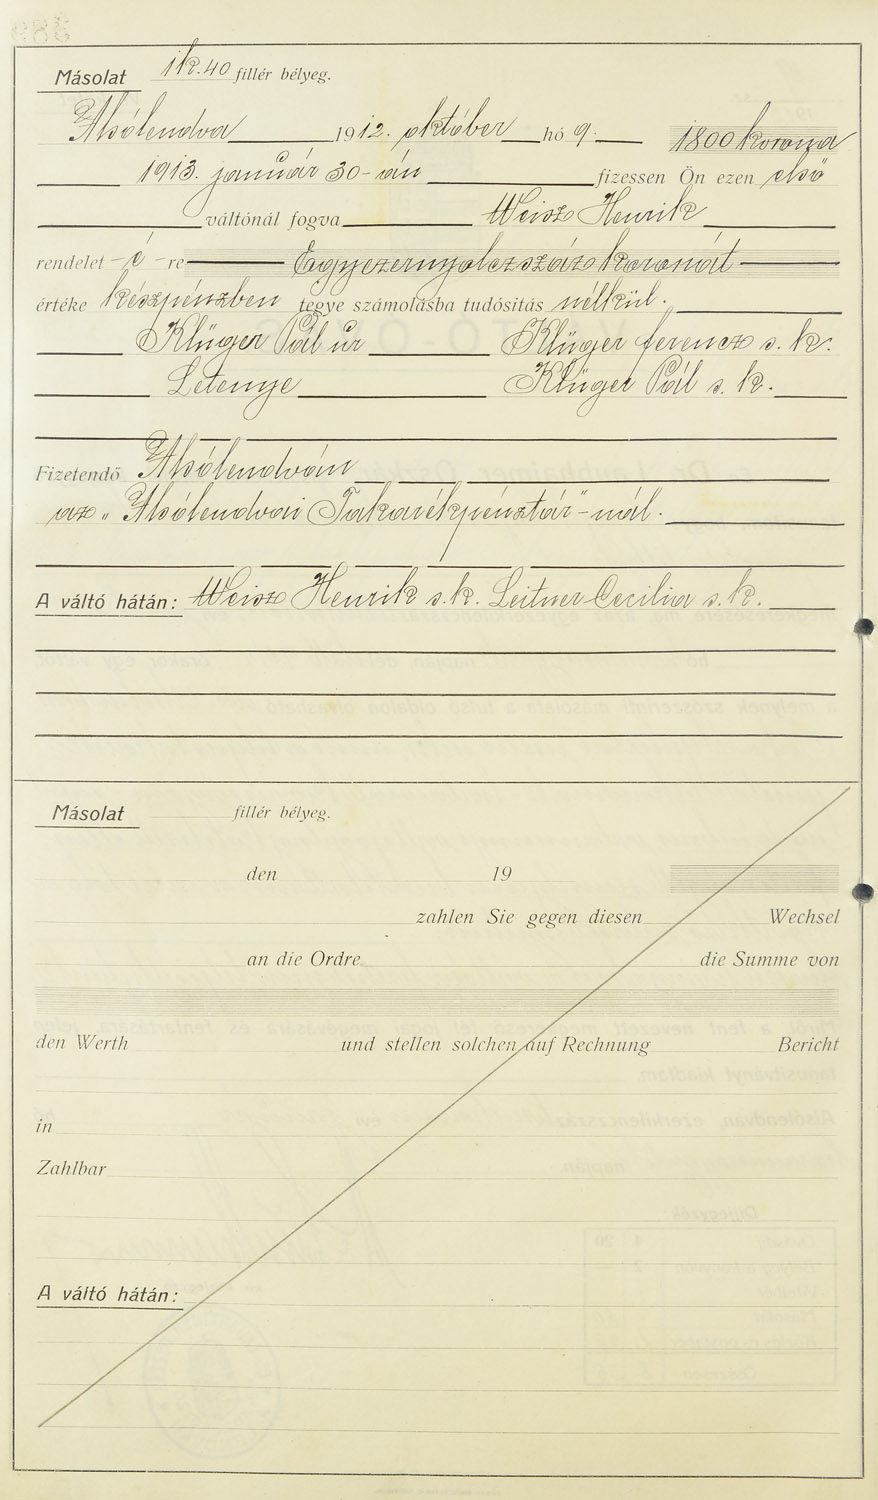 Másolat 1k.40 fillér bélyeg.
Alsólendva 1912. október hó 9. 1800 korona
1913. január 30-án fizessen Ön ezen első
váltónál fogva Weisz Henrik
rendelet -é- re Egyezernyolczszáz koronát
értéke készpénzben tegye számolásba tudósítás nélkül.
Klüger Pál úr Klüger ferencz s. k.
Letenye Klüger Pál s. k.
Fizetendő Alsólendván
az „Alsólendvai Takarékpénztár"-nál.
A váltó hátán: Weisz Henrik s.k. Leitner Cecilia s.k.
Másolat fillér bélyeg.
den 19
zahlen Sie gegen diesen Wechsel
an die Ordre die Summe von
den Werth und stellen solchen auf Rechnung Bericht
in
Zahlbar
A váltó hátán: